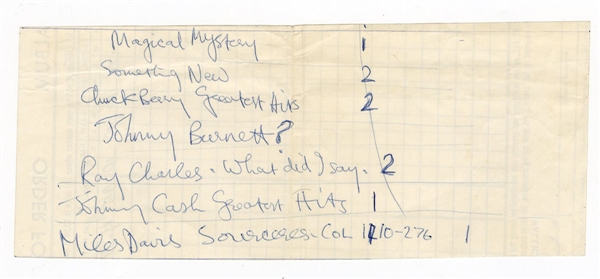 Magical Mystery 1
Something New 2
Chuck Berry Greatest Hits 2
Johnny Burnett?
Ray Charles. What did I say. 2
Johnny Cash Greatest Hits 1
Miles Davis Sourceres. COL 1110-276 1
ORDER FO